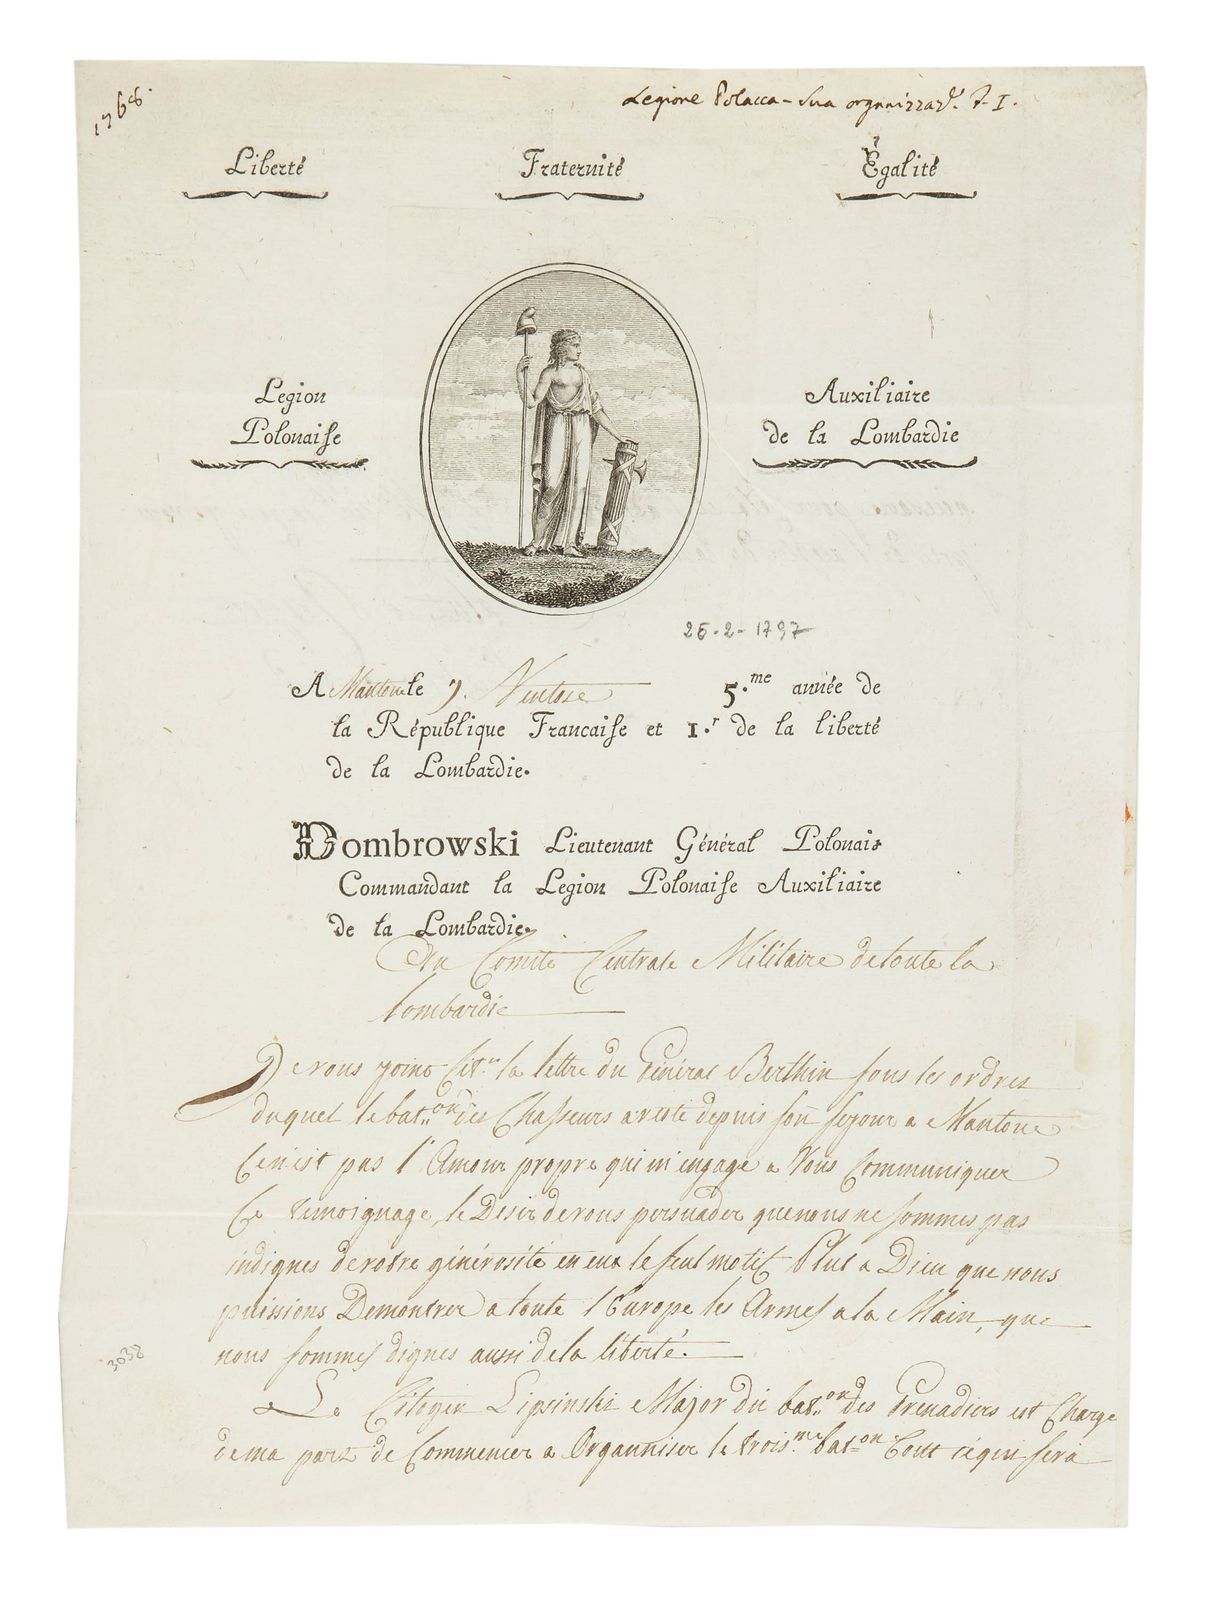 1768.
Legione Polacca - Sua organizzaz.e F-I.
Liberté Fraternité Égalité
Legion Auxiliaire
Polonaise de la Lombardie
26-2-1797
A Mantoue le 7. Ventose 5.me année de
la République Francaise et 1.r de la liberté
de la Lombardie.
Dombrowski Lieutenant Général Polonais
Commandant la Legion Polonaise Auxiliaire
de la Lombardie.
Au Comité Centrale Militaire de toute la
Lombardie
Je vous joint la lettre du Général Berthin sous les ordres
duquel le bat.on des Chasseurs a resté depuis son sejour a Mantoue
Ce n'est pas l'Amour propre qui m'engage a Vous Communiquer
Ce temoignage, le Desir de vous persuader que nous ne sommes pas
indignes de votre générosité en eux le seul motif. Plut a Dieu que nous
puissions Demontrer a toute l'Europe les Armes a la Main, que
nous sommes dignes aussi de la liberté.
Le Citoyen Lipsinski Major du bat.on des Grenadiers est Chargé
de ma part de Commencer a Organniser le trois.me bat.on Tout ce qui sera
3038